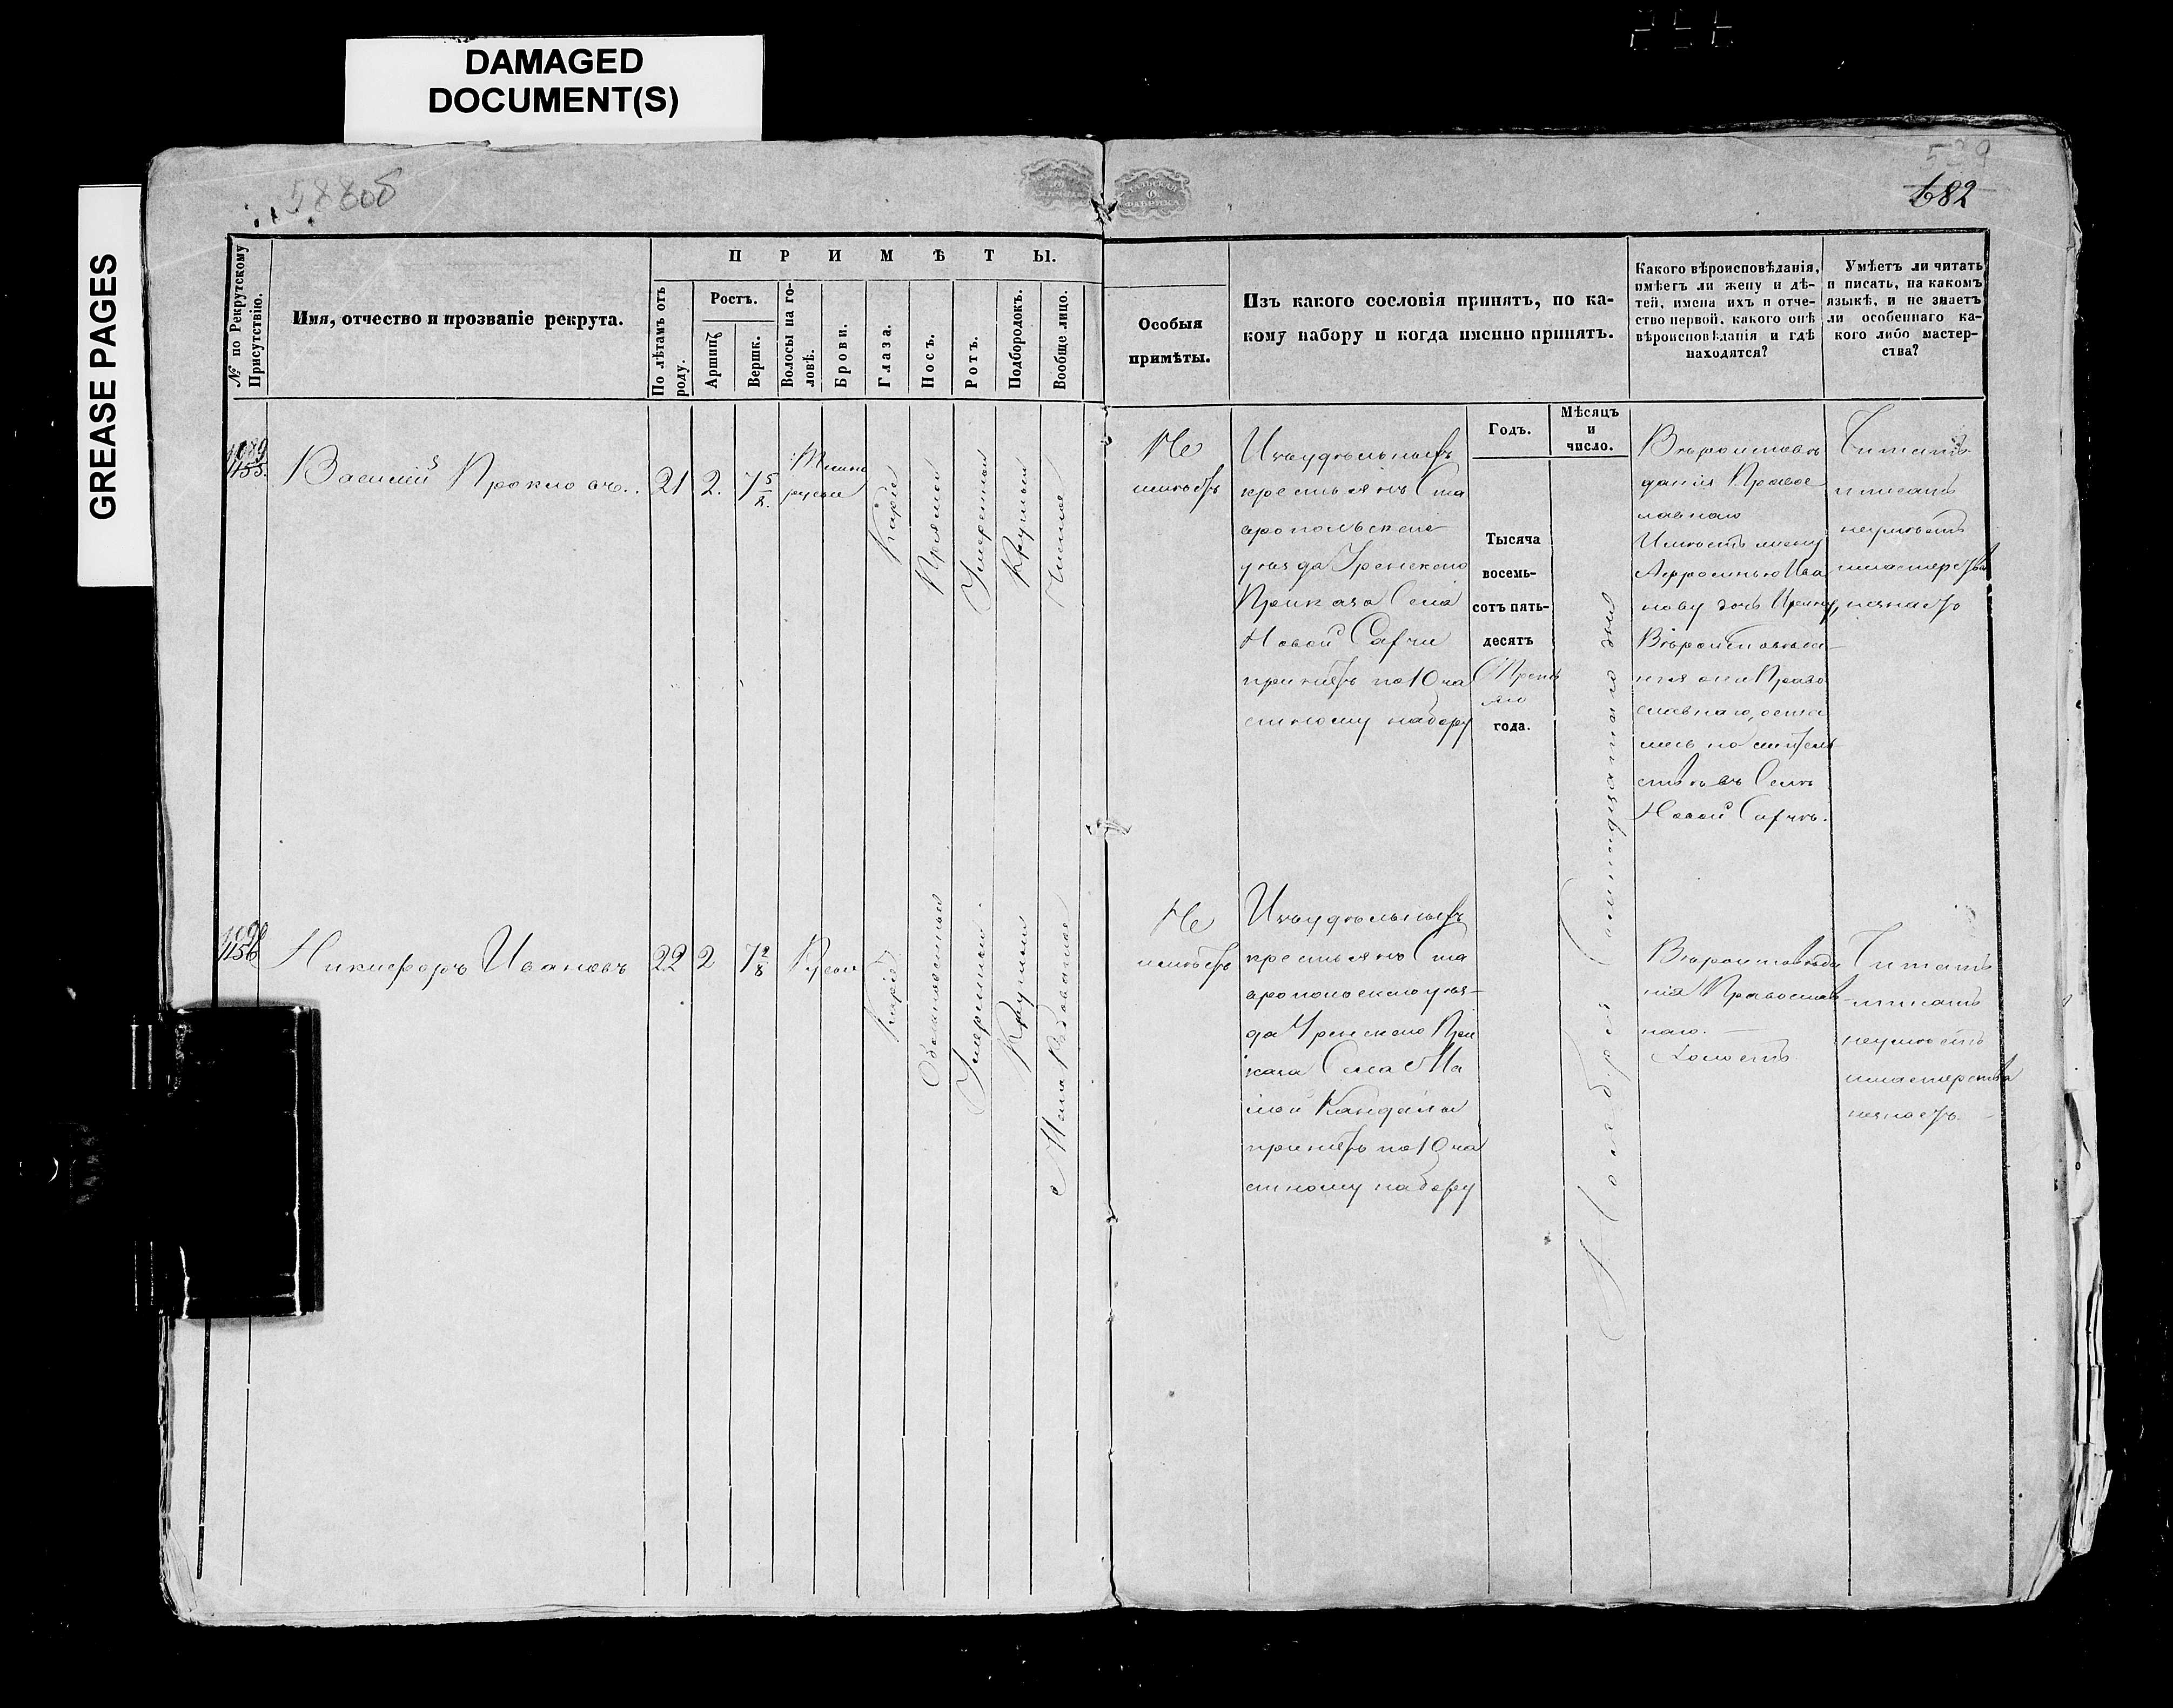 DAMAGED
DOCUMENT(S)
GREASE PAGES
588об
682
№ по Рекрутскому
Присутствію.
Имя, отчество и прозваніе рекрута.
ПРИМѢТЫ.
По лѣтамъ отъ
роду.
Ростъ.
Аршинъ
Вершк.
Волосы на го-
ловѣ.
Брови.
Глаза.
Носъ.
Ротъ.
Подбородокъ.
Вообще лицо.
Особыя
примѣты.
Изъ какого сословія принятъ, по ка-
кому набору и когда именно принятъ.
Какого вѣроисповѣданія,
имѣетъ ли жену и дѣ-
тей, имена ихъ и отче-
ство первой, какого онѣ
вѣроисповѣданія и гдѣ
находятся?
Умѣетъ ли читать
и писать, на какомъ
языкѣ, и не знаетъ
ли особеннаго ка-
кого либо мастер-
ства?
Годъ.
Мѣсяцъ
и
число.
1155.
Василій Прокловъ.
21
2.
7 5/8.
Темно
русыя
Каріе
Прямой
Умеренный
Круглый
Чистое
Не
имѣетъ
Изъ удѣльныхъ
крестьянъ Ста
вропольскаго
уѣзда Уренскаго
Приказа Села
Новой
принятъ по 10 ча
стному набору
Тысяча
восемь-
сотъ пять-
десятъ
года.
Ноября
дня
Вѣроисповѣ
данія Правос
лавнаго
Имѣетъ жену
Ива
нову дочь Ирину,
Вѣроисповѣда-
нія они Право
славнаго, оста
лись на житель
ствѣ въ Селѣ
Новой
Читать
и писать
неумѣетъ
и мастерства
незнаетъ
1156
Никифоръ Ивановъ
22
2
7 2/8
Русыя
Каріе
Обыкновенный
Умеренный
Круглый
Не
имѣетъ
Изъ удѣльныхъ
крестьянъ Ста
вропольскаго уѣз-
да Уренскаго При
каза Села Ма
лой Кандалы
принятъ по 10 ча
стному набору
Вѣроисповѣда
нія Православ
наго.
Холостъ
Читать
и писать
неумѣетъ
и мастерства
незнаетъ.